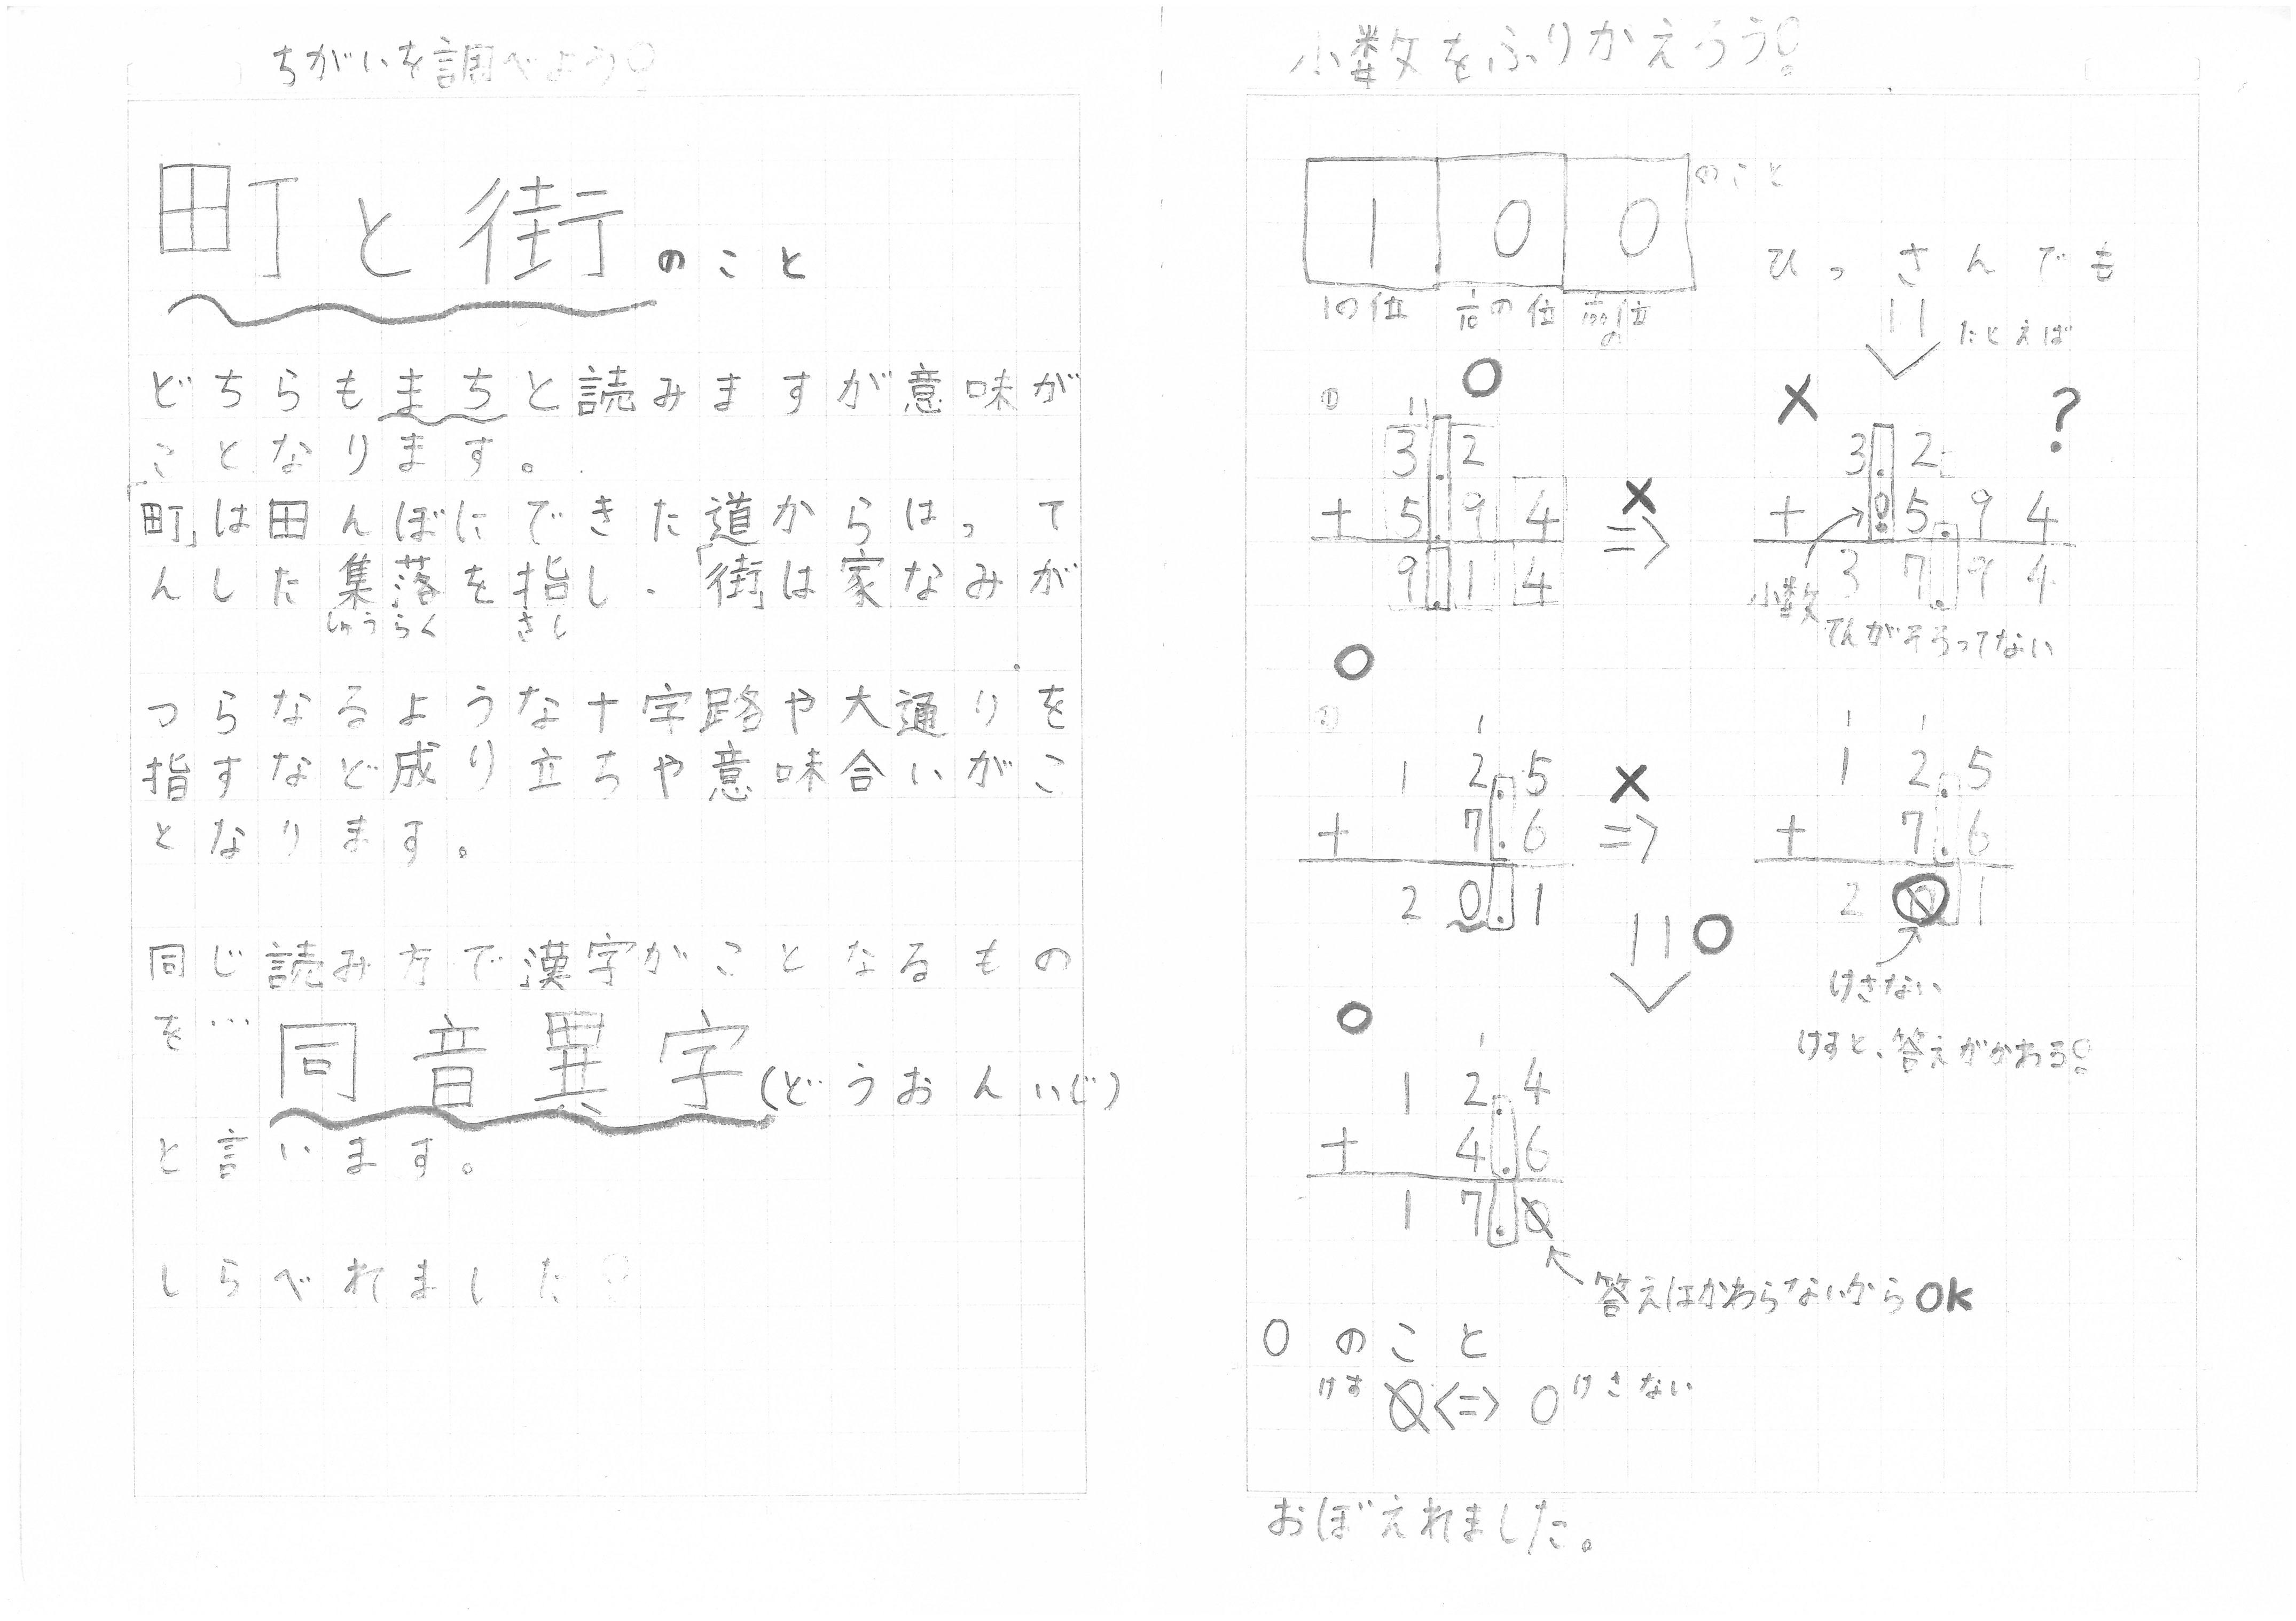 ちがいを調べよう!
町と街のこと
どちらもまちと読みますが意味が
ことなります。
「町」は田んぼにできた道からはって
んした集落を指し、「街」は家なみが
しゅうらく さし
つらなるような十字路や大通りを
指すなど成り立ちや意味合いがこ
となります。
同じ読み方で漢字がことなるもの
を…同音異字(どうおんいじ)
と言います。
しらべれました!
小数をふりかえろう!
1 0 0 のこと
1の位 1/10の位 1/100の位
ひっさんでも
たとえば
① ○ × ?
3.2
+ 5.94
9.14
× =>
3.2
+ 05.94
37.94
小数
てんがそろってない
○
1 2.5
+ 7.6
2 0.1
× =>
1 2.5
+ 7.6
2 0.1
けさない
けすと、答えがかわる!
○
○
1 2.4
+ 4.6
1 7.0
答えはかわらないからOK
0のこと
けす 0<=>0 けさない
おぼえれました。